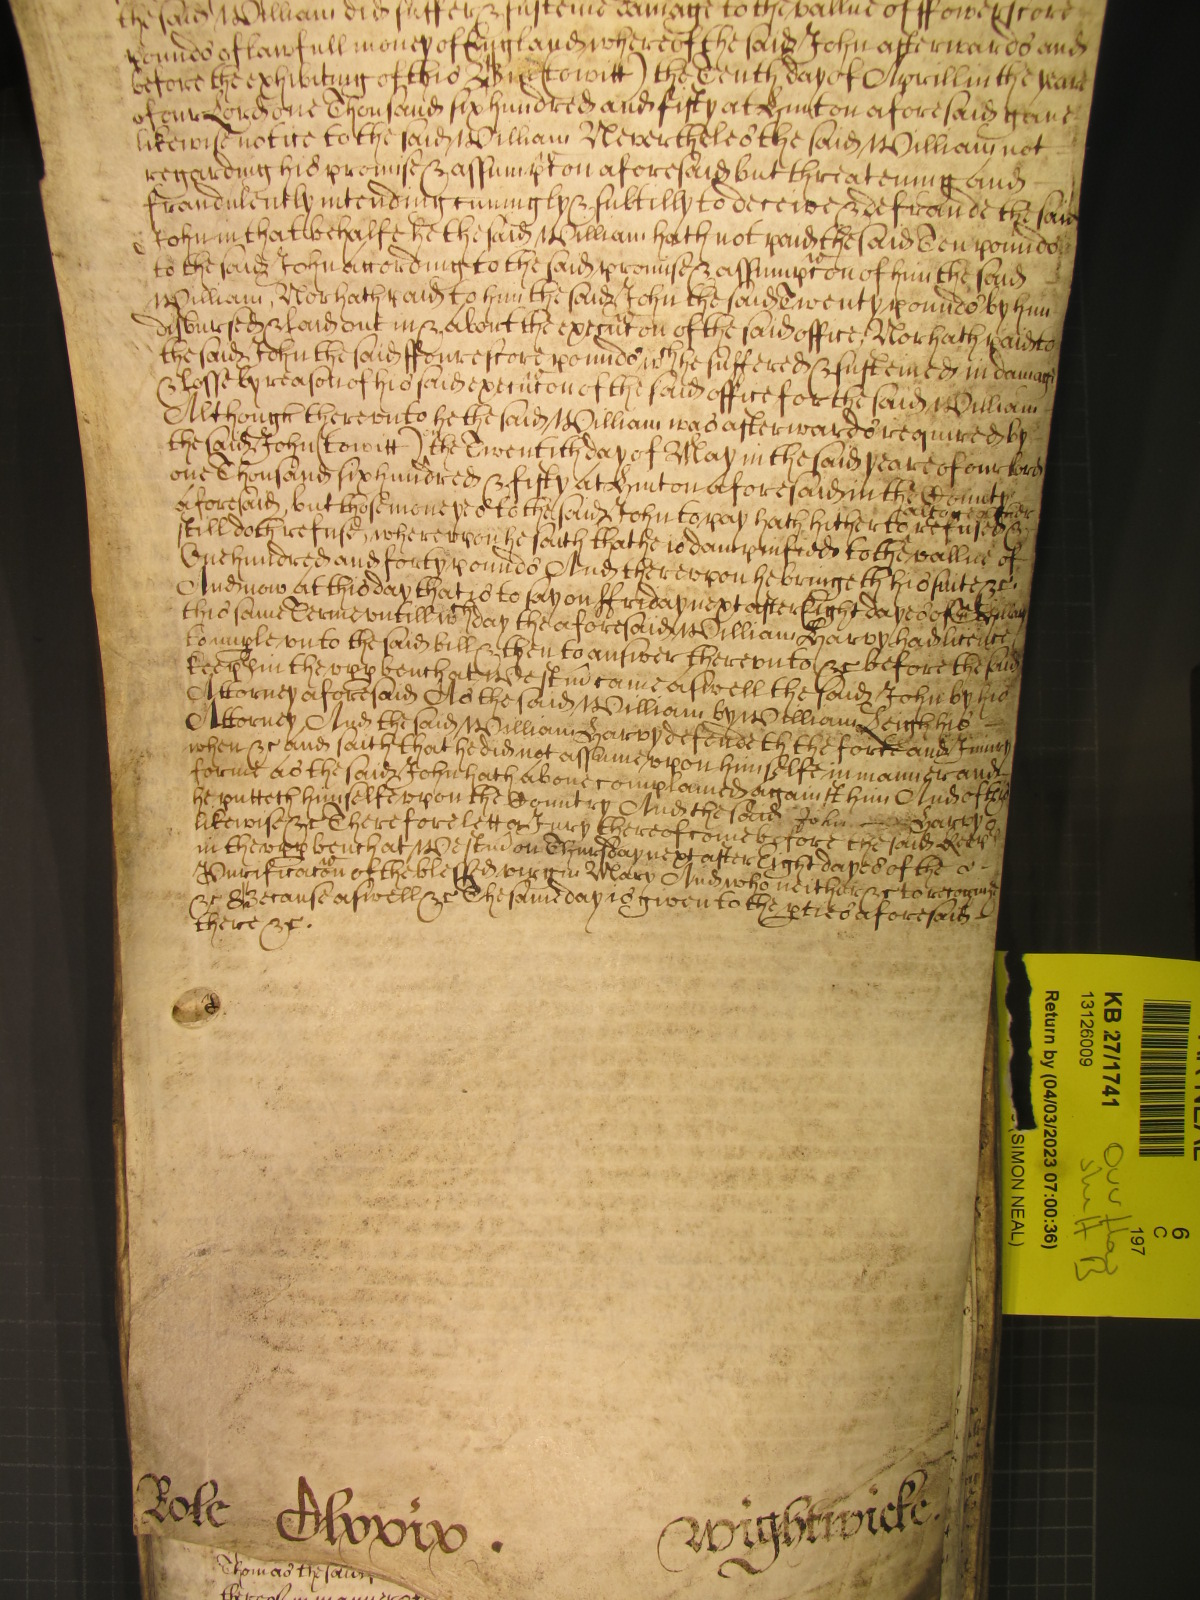 the said William did suffer & susteine damage to the vallue of ffowerscore
pounds of lawfull money of England whereof the said John afterwards and
before the exhibiting of this Bill (to witt) the Tenth day of Aprill in the yeare
of our Lord one Thousand six hundred and fifty at Hinton aforesaid gave
likewise notice to the said William Neverthelesse the said William not
regarding his promise & assumpcon aforesaid but threatening and
fraudulently intending cuningly & subtilly to deceive & defraude the said
John in that behalfe he the said William hath not paid the said Ten pounds
to the said John according to the said promise & assumpcon of him the said
William, Nor hath paid to him the said John the said Twenty pounds by him
disbursed & laid out in & about the execucon of the said office, Nor hath paid to
the said John the said ffourescore pounds wch he suffered & susteined in damage
& losse by reason of his said execucon of the said office for the said William
Although thereunto he the said William was afterwards required by
the said John (to witt) the Twentith day of May in the said yeare of our Lord
one Thousand six hundred & fifty at Hinton aforesaid in the County
aforesaid, but those moneyes to the said John to pay hath hitherto altogeather refused &
still doth refuse, whereupon he saith that he is dampnified to the vallue of
One hundred and forty pounds And thereupon he bringeth his suite &c.
And now at this day that is to say on ffriday next after Eight dayes of St Hillary
this same Terme untill wch day the aforesaid William Harvy had licence
to imple unto the said bill & then to answer thereunto &c before the said
keeps in the upp bench at Westmr came aswell the said John by his
Attorney aforesaid As the said William by William Leigh his
Attorney And the said William Harvy defendeth the force and Iniury
when &c and saith that he did not assume upon himselfe in manner and
forme as the said John hath above complained against him And of this
he putteth himselfe upon the Country And the said John Harvy
likewise &c Therefore lett a Jury thereof come before the said keeps
in the upp bench at Westmr on Thursday next after Eight dayes of the
Purificacon of the blessed virgin Mary And who neither &c to recognize
&c Because aswell &c The same day is given to the pties aforesaid
there &c.
Role Clxxix.
Wightwicke.
Thomas the said
KB 27/1741
13126009
Return by (04/03/2023 07:00:36)
(SIMON NEAL)
6
C
197